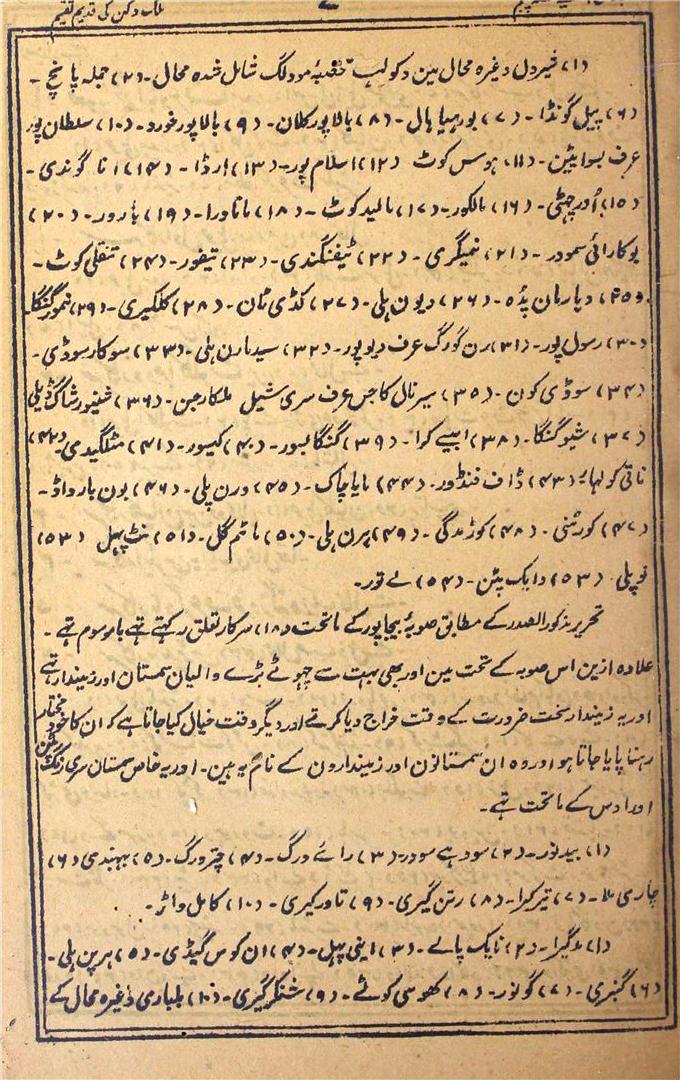 ملک دکن کی قدیم تقسیم
(۱) فیرول وغیرہ محال مین دکولہب قصبۂ مودلگ شامل شدہ محال۔ (۲) جملہ پانچ۔
(۶) پیل گونڈا۔ (۷) بورہیا ہال۔ (۸) بالاپور کلان۔ (۹) بالاپور خورد۔ (۱۰) سلطان پور
عرف بسوابیٹن۔ (۱۱) ہوس کوٹ (۱۲) اسلام پور۔ (۱۳) اردا۔ (۱۴) انا گوندی۔
(۱۵) أدرچہٹی۔ (۱۶) بالکور۔ (۱۷) مالیدکوٹ۔ (۱۸) ماناورا۔ (۱۹) بارور۔ (۲۰)
بوکارائی سمودر۔ (۲۱) نمیگری۔ (۲۲) ٹیفنگندی۔ (۲۳) تیفور۔ (۲۴) تنقلی کوٹ۔
(۲۵) دپارمان پڈہ۔ (۲۶) دیون ہلی۔ (۲۷) کڈی ٹان۔ (۲۸) کلکیری۔ (۲۹) نمور گنگا
(۳۰) رسول پور۔ (۳۱) رن گورگ عرف دیوپور۔ (۳۲) سیدمارن ہلی۔ (۳۳) سوکار سوڈی۔
(۳۴) سوڈی کون۔ (۳۵) سیرنال کا جس عرف سری شیل ملکارجن۔ (۳۶) شنیور شاگ ڈیلی
(۳۷) شیوگنگا۔ (۳۸) ایسے کرا۔ (۳۹) گنگا بسور۔ (۴۰) کیسور۔ (۴۱) مٹلگیدی۔ (۴۲)
ناتی کولہایہ (۴۳) ڈاف فنڈور۔ (۴۴) مایاچاک۔ (۴۵) ورن پلی۔ (۴۶) بون بارواڈ۔
(۴۷) کورٹنی۔ (۴۸) کوڑمدگی۔ (۴۹) پرن ہلی۔ (۵۰) ماتم گل۔ (۵۱) نٹ پہل (۵۳)
فوپلی (۵۳) دایک پٹن۔ (۵۴) بے تور۔
تحریر مذکور الصدر کے مطابق صوبۂ بیجاپور کے ماتحت (۱۸) سرکار تعلق رکہتے تہے باموسوم تہے۔
علاوہ ازین اس صوبہ کے تحت مین اور بھی بہت سے چہوٹے بڑے والیان سمستان اور زمیندار تہے
اور یہ زمیندار سخت ضرورت کے وقت خراج دیا کرتے اور دیگر وقت خیال کیا جاتا ہے کہ ان کا خود مختار
رہنا پایا جاتا ہو اور وہ ان سمستانون اور زمیندارون کے نام یہ ہین۔ اور یہ خاص سمستان سری رنگ پٹن
اور ادس کے ماتحت تہے۔
(۱) بیدنور۔ (۲) سودہے سودر۔ (۳) رائے درگ۔ (۴) چترورگ۔ (۵) بہبندی (۶)
چاری ملا۔ (۷) تیرکرا۔ (۸) رتن گیری۔ (۹) تاورکیری۔ (۱۰) کامل واڑ۔
(۱) مدگیرا۔ (۲) نایک پالے۔ (۳) اینی پہل۔ (۴) ان کوس گیڈی۔ (۵) ہرپن ہلی۔
(۶) گنبری۔ (۷) گونور۔ (۸) کھوسی کوٹے۔ (۹) شنکرگیری۔ (۱۰) بلہاری وغیرہ محال کے